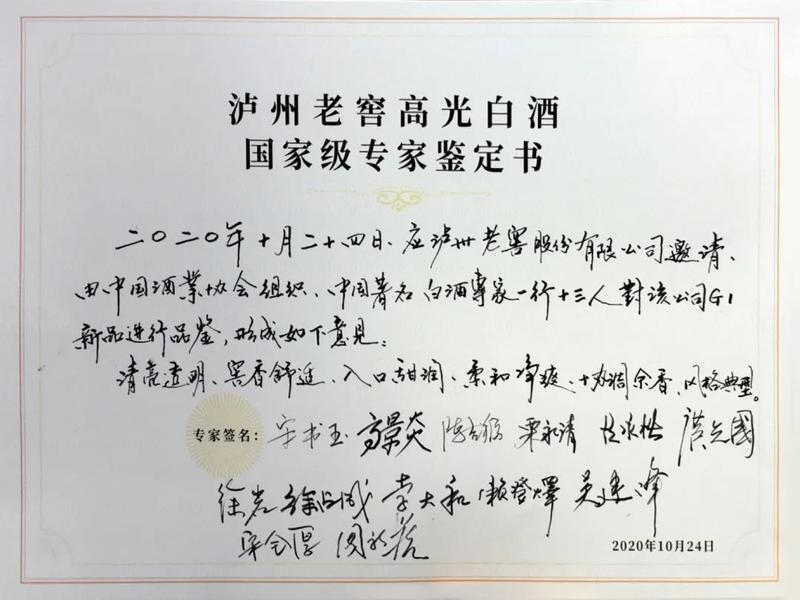 泸州老窖高光白酒
国家级专家鉴定书
二〇二〇年十月二十四日、应泸州老窖股份有限公司邀请、
由中国酒业协会组织、中国著名白酒專家一行十三人對该公司G1
新品进行品鉴,形成如下意见:
清亮透明、窖香舒适、入口甜润、柔和净爽、协调余香、风格典型。
专家签名: 宋书玉 高景炎 栗永清
徐岩 李大和 赖登燡 吴建峰
2020年10月24日